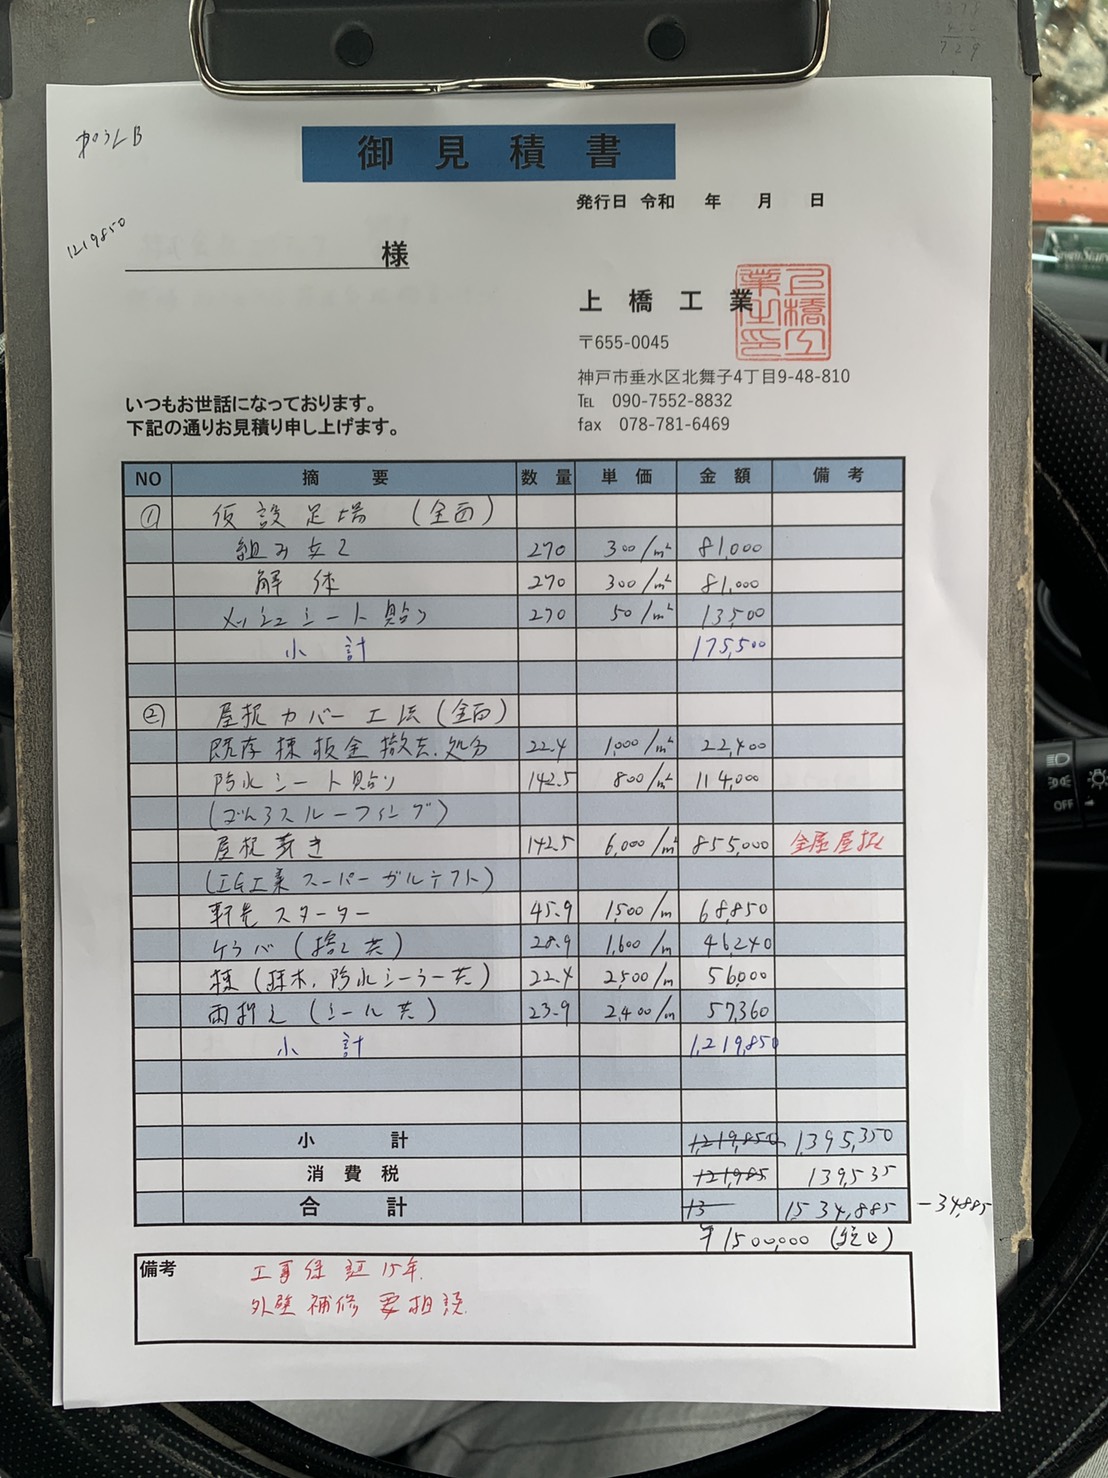 御見積書
発行日 令和 年 月 日
1219850
様
上橋工業
上橋工業之印
〒655-0045
神戸市垂水区北舞子4丁目9-48-810
℡ 090-7552-8832
fax 078-781-6469
いつもお世話になっております。
下記の通りお見積り申し上げます。
NO 摘要 数量 単価 金額 備考
① 仮設足場 (全面)
組み立て 270 300/m² 81,000
解体 270 300/m² 81,000
メッシュシート貼り 270 50/m² 13,500
小計 175,500
② 屋根カバー工法(全面)
既存棟板金撤去、処分 22.4 1,000/m² 22,400
防水シート貼り 142.5 800/m² 114,000
(ゴムアスルーフィング)
屋根葺き 142.5 6,000/m² 855,000 金属屋根
(IG工業スーパーガルテクト)
軒先スターター 45.9 1,500/m 68,850
ケラバ (捨て共) 28.9 1,600/m 46,240
棟 (垂木、防水シーラー共) 22.4 2,500/m 56,000
雨押え (シール共) 23.9 2,400/m 57,360
小計 1,219,850
小計 1,219,850 1,395,350
消費税 121,985 139,535
合計 13 1534,885 -34,885
¥1500,000 (税込)
備考 工事保証15年.
外壁補修要相談.